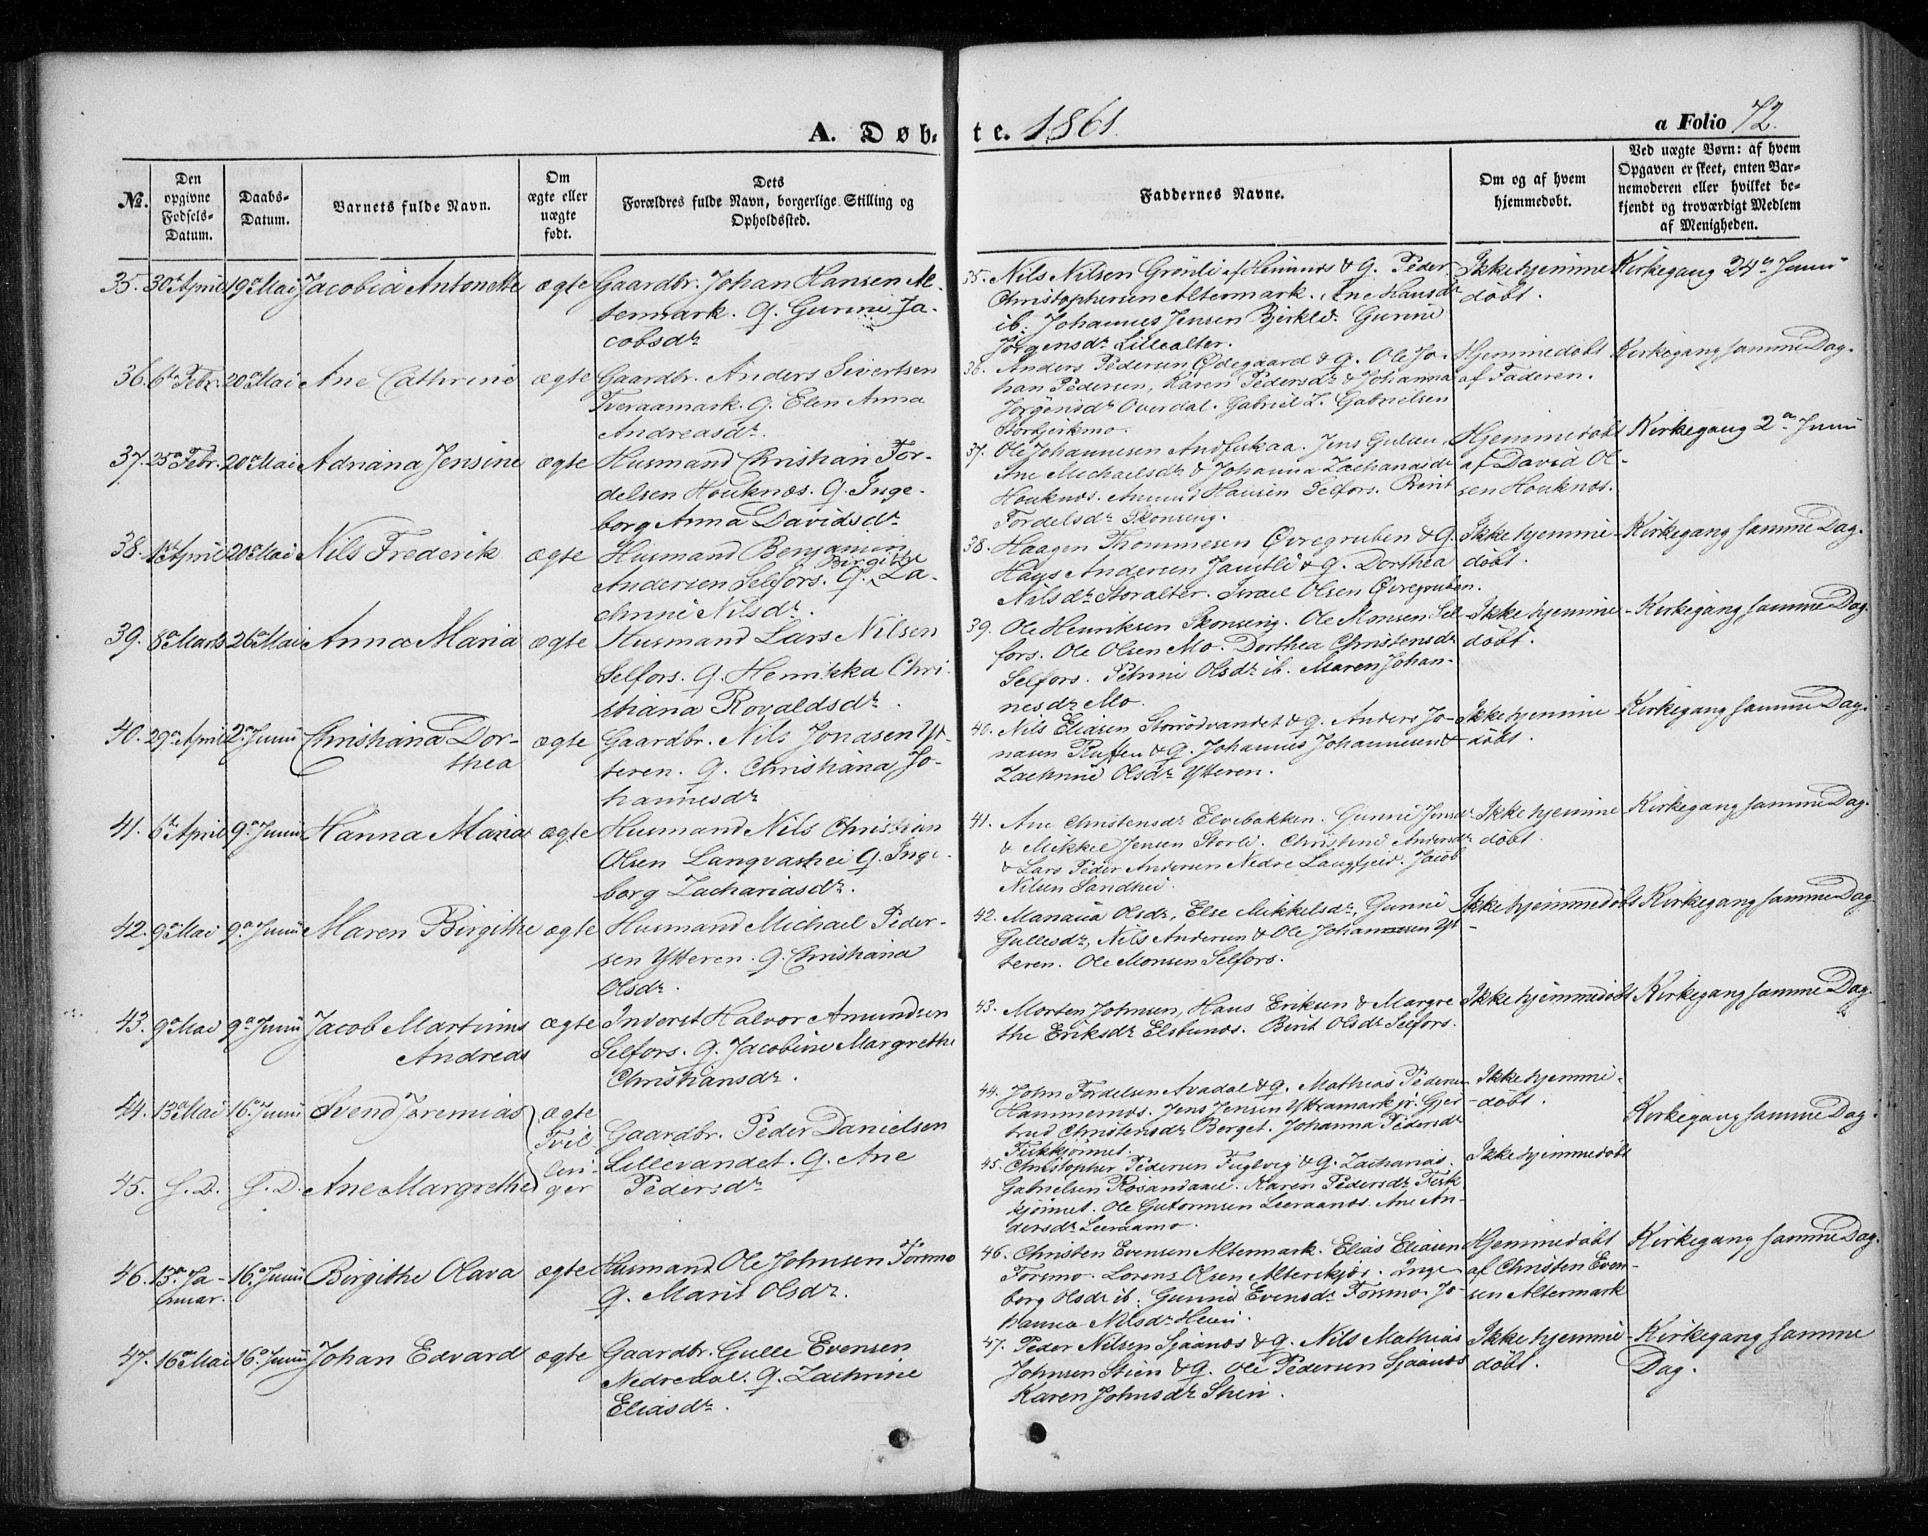 A. Døb-
te. 1861.
a Folio 72.
No.
Den opgivne Fødsels-Datum.
Daabs-Datum.
Barnets fulde Navn.
Om ægte eller uægte født.
Dets Forældres fulde Navn, borgerlige Stilling og Opholdssted.
Faddernes Navne.
Om og af hvem hjemmedøbt.
Ved uægte Børn: af hvem Opgaven er skeet, enten Barnemoderen eller hvilket bekjendt og troværdigt Medlem af Menigheden.
35. 30te April 19de Mai Jacobia Antonette ægte Gaardbr. Johan Hansen Al-
termark. Q. Gurine Ja-
cobsdr
35. Nils Nilsen Grønli af Hemnæs & Q. Peder
Christophersen Altermark. Ane Hansdr
ib. Johannes Jensen Bjerkli. Gurine
Jørgensdr Lillealter.
Ikke hjemme
døbt.
Kirkegang 24de Juni
36. 6te Febr. 20de Mai Ane Cathrine ægte Gaardbr. Anders Sivertsen
Tveraamark. Q. Elen Anna
Andreasdr.
36. Anders Pedersen Ødegaard & Q. Ole Jo-
han Pedersen, Karen Pedersdr & Johanna
Jørgensdr Overdal. Gabriel Z. Gabrielsen
Storbjerkmo.
Hjemmedøbt
af Faderen.
Kirkegang samme Dag.
37. 25de Febr. 20de Mai Adriana Jensine ægte Husmand Christian For-
delsen Houknæs. Q. Inge-
borg Anna Davidsdr
37. Ole Johannesen Andfiskaa. Jens Gulsen,
Ane Michaelsdr & Johanna Zachariasdr
Houknæs. Amund Hansen Selfors. Berit
Fordelsdr Skonseng.
Hjemmedøbt
af David Ol-
sen Houknæs.
Kirkegang 2den Juni
38. 1ste April 20de Mai Nils Frederik ægte Husmand Benjamin
Andersen Selfors. Q. Birgitte Za-
chrine Nilsdr.
38. Haagen Thommesen Øvregruben & Q.
Hans Andersen Jamtli & Q. Dorthea
Nilsdr Storalter. Israel Olsen Øvregruben.
Ikke hjemme-
døbt.
Kirkegang samme Dag.
39. 8de Marts 26de Mai Anna Maria ægte Husmand Lars Nilsen
Selfors. Q. Henrikka Chri-
stiana Rovaldsdr.
39. Ole Henriksen Skonseng. Ole Monsen Sel-
fors. Ole Olsen Mo. Dorthea Christensdr
Selfors. Petrine Olsdr ib. Maren Johan-
nesdr Mo.
Ikke hjemme-
døbt.
Kirkegang samme Dag.
40. 29de April 2den Juni Christiana Dor-
thea ægte Gaardbr. Nils Jonasen Yt-
teren. Q. Christiana Jo-
hannesdr
40. Nils Eliasen Storrødvandet & Q. Anders Jo-
nasen Ruffen & Q. Johannes Johannesen &
Zachrine Olsdr Ytteren.
Ikke hjemme
døbt.
Kirkegang samme Dag.
41. 6te April 9de Juni Hanna Maria ægte Husmand Nils Christian
Olsen Langvashei Q. Inge-
borg Zachariasdr.
41. Ane Christensdr Elvebakken. Gunni Jensdr
& Mikkel Jensen Storli. Christine Andersdr
& Lars Peder Andersen Nedre Langfjeld. Jacob
Nilsen Sandhei.
Ikke hjemme
døbt.
Kirkegang samme Dag.
42. 9de Mai 9de Juni Maren Birgithe ægte Husmand Michael Peder-
sen Ytteren. Q. Christiana
Olsdr.
42. Olsdr, Else Mikkelsdr, Gunni
Gullesdr, Nils Andersen & Ole Johannesen Yt-
teren. Ole Monsen Selfors.
Ikke hjemmedøbt
Kirkegang samme Dag
43. 9de Mai 9de Juni Jacob Martinus
Andreas ægte Inderst Halvor Amundsen
Selfors. Q. Jacobine Margrethe
Christiansdr.
43. Morten Johnsen, Hans Eriksen & Margre
the Eriksdr Elsbunds. Berit Olsdr Selfors.
Ikke hjemmedøbt
Kirkegang samme Dag.
44. 13de Mai 16de Juni Svend Jeremias ægte
Tvil
lin-
ger
Gaardbr. Peder Danielsen
Lillevandet. Q. Ane
Pedersdr
44. John Fordelsen Avadal & Q. Mathias Pedersen
Hammernæs. Jens Jensen Yttramark jr. Gjer
trud Christensdr Berget. Johanna Pedersdr
Fiskkjønnet.
Ikke hjemme-
døbt.
Kirkegang samme Dag.
45. S. D. S. D. Ane Margrethe
45. Christopher Pedersen Fuglvig & Q. Zacharias
Gabrielsen Røsandaael. Karen Pedersdr Fisk
kjønnet. Ole Guttormsen Leeraands. Ane An-
dersdr Leeraamo.
Ikke hjemmedøbt
46. 13de Ja-
nuar. 16de Juni Birgithe Olava ægte Husmand Ole Johnsen Forsmo
Q. Marit Olsdr.
46. Christen Evensen Altermark. Elias Eliasen
Forsmo. Lorens Olsen Alterskjær. Inge-
borg Olsdr ib. Gunni Evensdr Forsmo. Jo-
hanna Nilsdr
Hjemmedøbt
af Christen Even-
sen Altermark
Kirkegang samme Dag.
47. 16de Mai 16de Juni Johan Edvard ægte Gaardbr. Gulle Evensen
Nedredal. Q. Zachrine
Eliasdr.
47. Peder Nilsen Sjaanæs & Q. Nils Mathias
Johnsen Stien & Q. Ole Pedersen Sjaanæs
Karen Johnsdr Stien.
Ikke hjemme-
døbt.
Kirkegang samme
Dag.